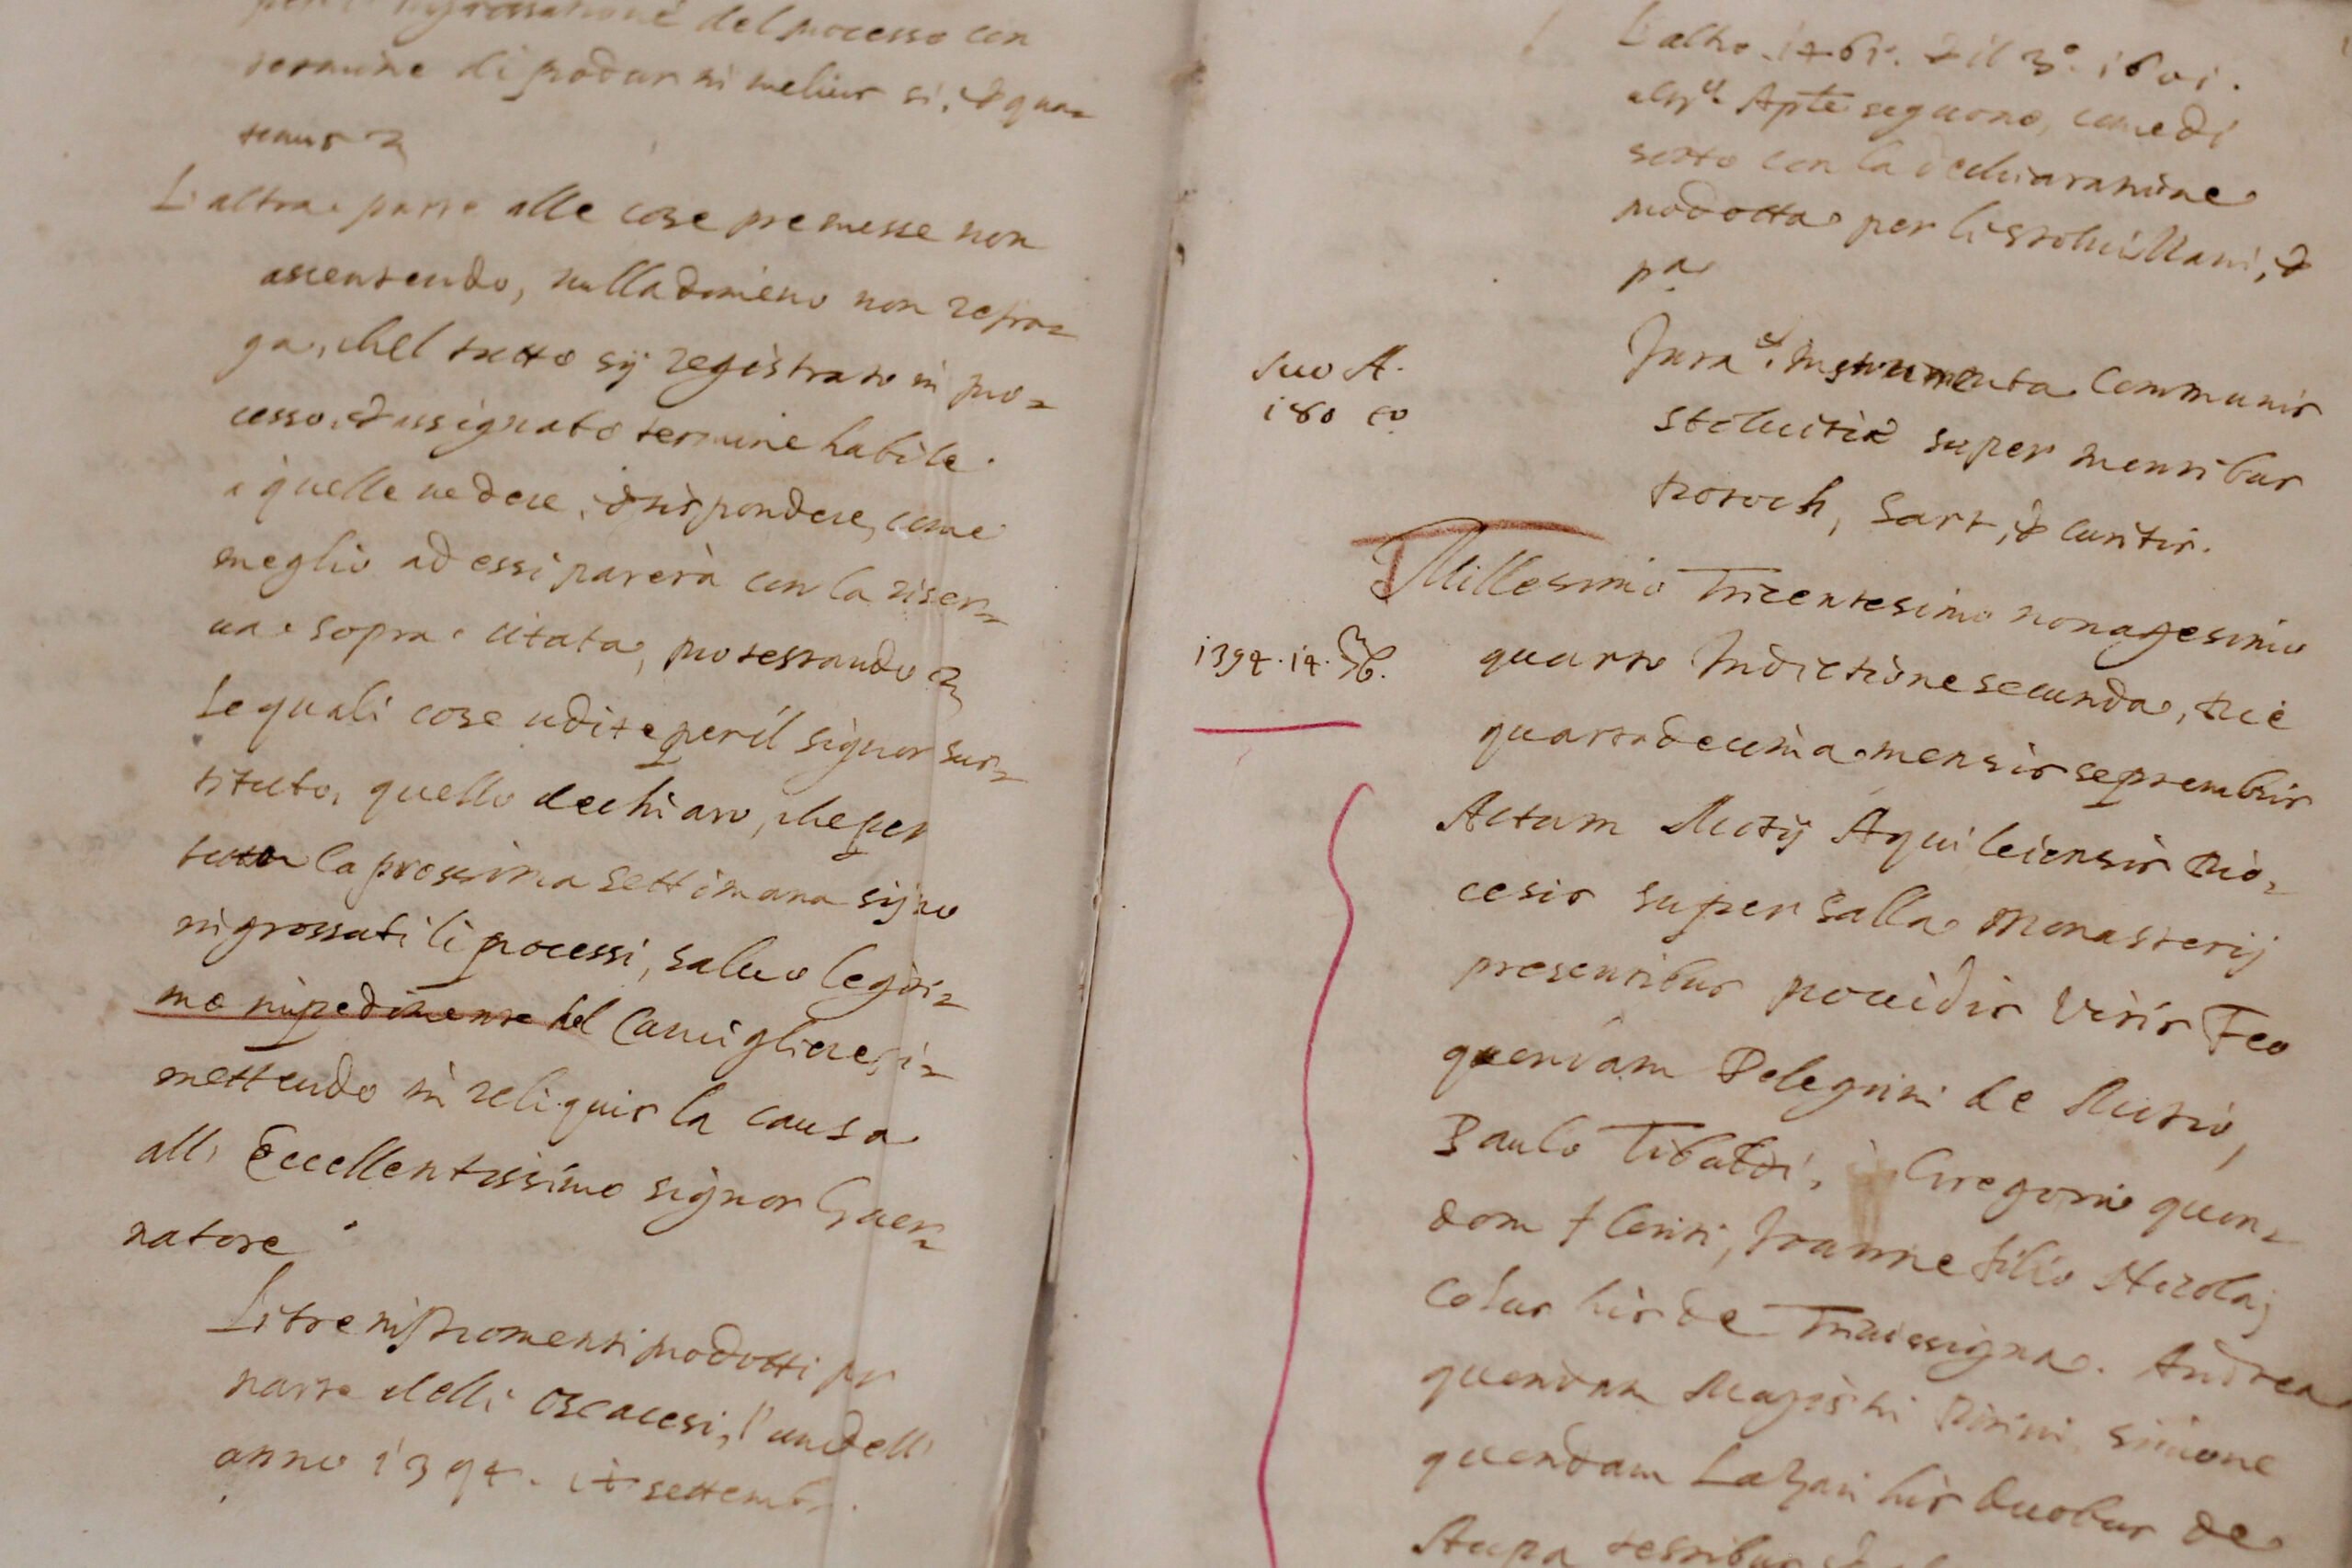 del processo con
termine di produrni melius si, & qua=
tenus &
L'altra parte alle cose premesse non
assentendo, nulladimeno non refra=
ga, chel tutto sij registrato in pro=
cesso, & assignato termine habile
à quelle vedere, & rispondere, come
meglio ad essi parerà con la riser=
va sopra citata, protestando &
Le quali cose udite per il signor sus=
tituto, quello dechiarò, che per
tutta la prossima settimana sijno
ingrossati li processi, salvo legiti=
mo impedimento del Cancigliere, ri=
mettendo in reliquis la causa
all' Eccellentissimo signor Guer=
natore
Li tre instromenti prodotti per
parte delli Oseacesi, l'un dell'
anno 1394. 14 settembr.
L'altro 1461. & il 3º. 1601.
seguono, come di
sotto con la dechiaratione
prodotta per li Stolvizzani, &
pª
suo A.
180 tº
Jura et Instrumenta Communis
Stolvitiæ super montibus
Potoch, Sart, & Canitis.
1394. 14. 7b.
Millesimo Tricentesimo nonagesimo
quarto Indictione secunda, die
quartadecima mensis septembris
Actum Mozij Aquileiensis Dio=
cesis super salla Monasterij
presentibus providis viris Feo
quondam Pelegrini de Mozio,
Paulo Tibaldi, Gregorio quon=
dam Clerici, Joanne filio Nicolaj
his de Travisigna. Andrea
quondam Magistri Simone
quondam Lazari his duobus de
Aupa testibus &